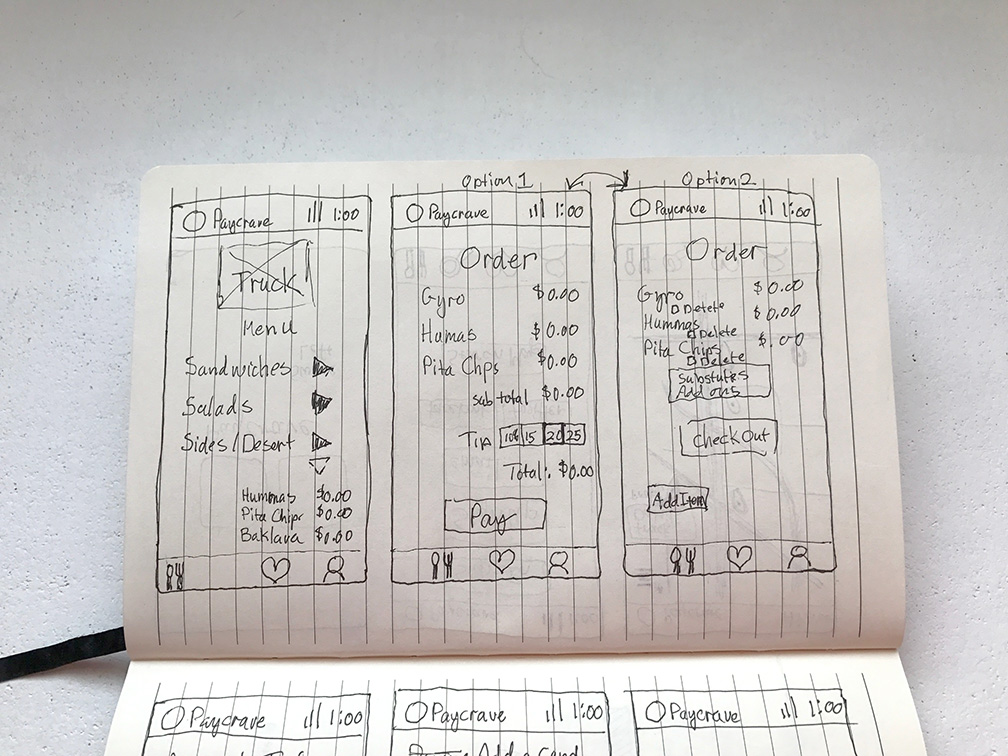 Option 1
Option 2
Paycrave 1:00
Truck
Menu
Sandwiches
Salads
Sides/Desert
Hummas $0.00
Pita Chips $0.00
Baklava $0.00
Paycrave 1:00
Order
Gyro $0.00
Humas $0.00
Pita Chps $0.00
Sub total $0.00
Tip 10% 15 20 25
Total: $0.00
Pay
Paycrave 1:00
Order
Gyro $0.00
Delete
Hummas $0.00
Delete
Pita Chips $.00
Delete
Substutes
Add ons
Check Out
Add Item
Paycrave 1:00
Paycrave 1:00
Add a Card
Paycrave 1:00